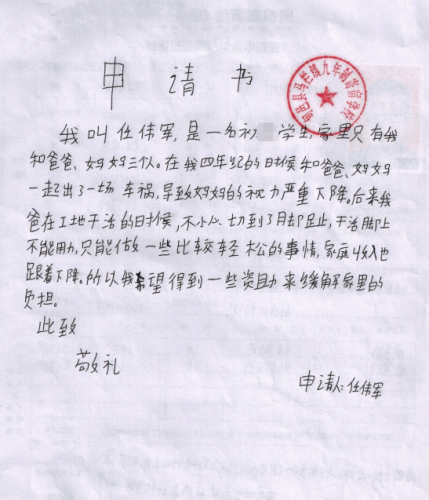 申请书
旬邑县马栏镇九年制寄宿学校
我叫任伟军,是一名初 学生,家里只有我
和爸爸、妈妈三个人。在我四年级的时候和爸爸、妈妈
一起出了一场车祸,导致妈妈的视力严重下降。后来我
爸在工地干活的时候,不小心切到了脚趾,干活脚上
不能用力,只能做一些比较轻松的事情,家庭收入也
跟着下降。所以我希望得到一些资助来缓解家里的
负担。
此致
敬礼
申请人:任伟军